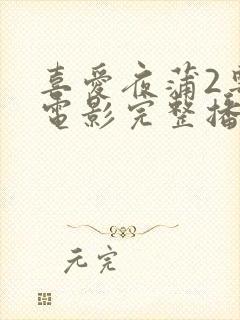 喜愛夜蒲2
電影完整播
元完